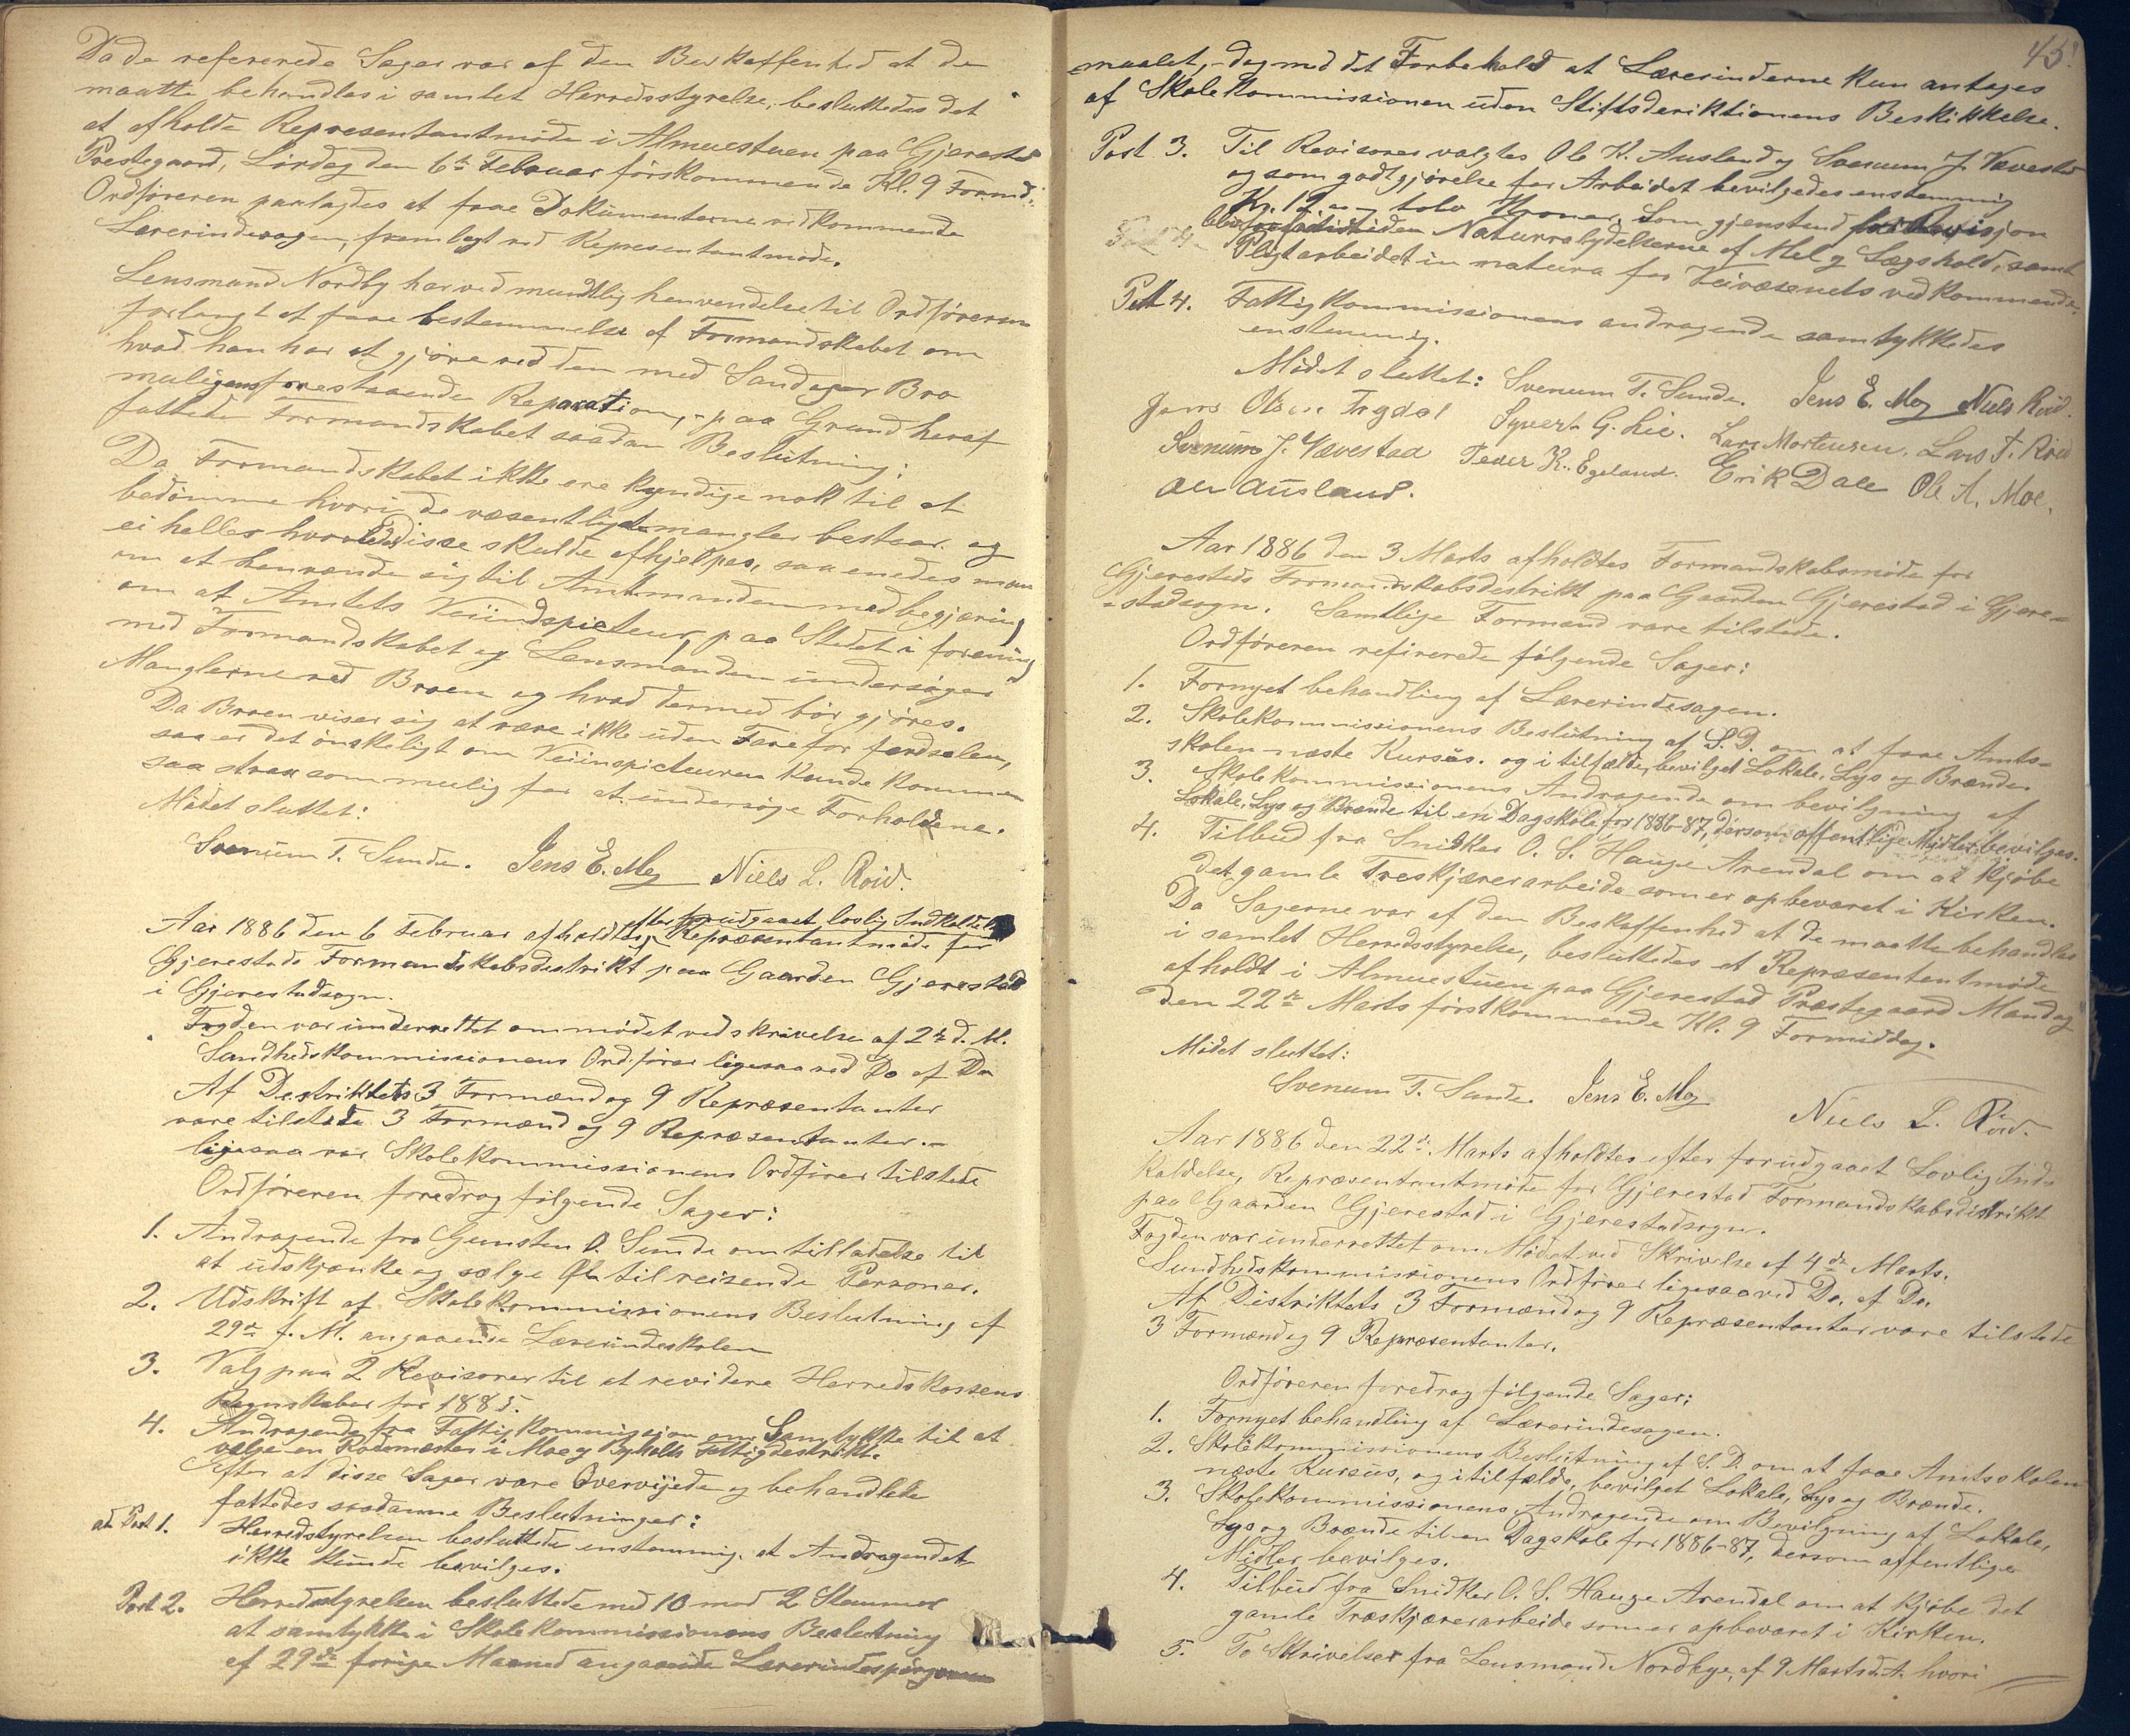 Da de refererede Sager var af den Beskaffenhed at de
maatte behandles i samlet Herredsstyrelse, besluttedes det
at afholde Representantmøde i Almuestuen paa Gjerestad
Prestegaard, Lørdag den 6te Februar førskommende Kl. 9 Formd.
Ordføreren paalagdes at faae Dokumenterne vedkommende
Lærerindesagen, fremlagt ved Representantmøde.
Lensmand Nordby har ved mundtlig henvendelse til Ordføreren
forlangt at faae bestemmelse af Formandskabet om
hvad han har at gjøre ved den med Sandager Bro
muligens forestaaende Reparation, - paa Grund heraf
fattede Formandskabet saadan Beslutning:
Da Formandskabet ikke ere kyndige nok til at
bedømme hvori de væsentligste mangler bestaar og
ei heller hvorledes disse skulde afhjelpes, saa enedes man
om at henvende sig til Amtmanden med begjæring
om at Amtets Veiindspicteur, paa Stedet i forening
med Formandskabet og Lensmanden undersøger
Manglerne ved Broen og hvad dermed bør gjøres.
Da Broen viser sig at være ikke uden Fare for færdselen,
saa er det ønskeligt om Veiinspicteuren kunde komme
saa strax som mulig for at undersøge Forholdene.
Mødet sluttet:
Svenum T. Sunde. Jens E. Moy Niels L. Roid.
efter forudgaaet lovlig Indkaldelse
Aar 1886 den 6 Februar afholdtes Repræsentantmøde for
Gjerestads Formandskabsdestrikt paa Gaarden Gjerestad
i Gjerestadsogn.
Fogden var underrettet om mødet ved skrivelse af 2de d. M.
Sundhedskommissionens Ordfører ligesaa ved Do af Do
Af Destriktets 3 Formænd og 9 Repræsentanter
vare tilstede 3 Formænd og 9 Repræsentanter. -
ligesaa var Skolekommissionens Ordfører tilstede
Ordføreren foredrog følgende Sager:
1. Andragende fra Gunsten O. Sunde om tilladelse til
at udskjænke og sælge Øl til reisende Personer.
2. Udskrift af Skolekommissionens Beslutning af
29de f. M. angaaende Lærerindeskolen
3. Valg paa 2 Revisorer til at revidere Herredskassens
Regnskaber for 1885.
4. Andragende fra Fattigkommissjon om Samtykke til at
vælge en Rodemester i Moe og Fattigdestrikt.
Efter at disse Sager vare Overveiede og behandlede
fattedes saadanne Beslutninger:
ad Post 1. Herredstyrelsen besluttede enstemmig, at Andragendet
ikke kunde bevilges.
Post 2. Herredstyrelsen besluttede med 10 mod 2 Stemmer
at samtykke i Skolekommissionens Beslutning
af 29de forige Maaned angaaende Lærerindespørgs
45.
maalet, - dog med det Forbehold at Lærerinderne kun antages
af Skolekommissionen uden Stiftsderiktionens Beskikkelse.
Post 3. Til Revisorer valgtes Ole K. Ausland og Svenum J. Vævestad
og som godtgjørelse for Arbeidet bevilgedes enstemmig
Kr. 12 - tolv Kroner. Som gjenstand for Revisjon
Naturralydelserne af Mel og Lægshold, samt
Pligtarbeidet in natura for Veivæsenets vedkommende.
Post 4. Fattigkommissionens andragende samtykkedes
enstemmig.
Mødet sluttet: Svenum T. Sunde. Jens E. Moy Niels Roid.
Jens Olsen Trydal Syvert G. Lie. Lars Mortensen. Lars T. Roid
Svenum J. Vævestad Peder K. Egeland. Erik Dale Ole A. Moe.
Ole Ausland.
Aar 1886 den 3 Marts afholdtes Formandskabsmøde for
Gjerestads Formandskabsdestrikt paa Gaarden Gjerestad i Gjere-
stadsogn. Samtlige Formænd vare tilstede.
Ordføreren refirerede følgende Sager:
1. Fornyet behandling af Lærerindesagen.
2. Skolekommissionens Beslutning af S. D. om at faae Amts-
skolen næste Kursus. og i tilfælde, bevilget Lokale, Lys og Brænde.
3. Skolekommissionens Andragende om bevilgning af
Lokale, Lys og Brænde til en Dagskole for 1886-87, dersom offentlige Midler bevilges.
4. Tilbud fra Snidker O. S. Hauge Arendal om at kjøbe
det gamle Treskjærerarbeide som er opbevaret i Kirken.
Da Sagerne var af den Beskaffenhed at de maatte behandles
i samlet Herredsstyrelse, besluttedes et Repræsententmøde
afholdt i Almuestuen paa Gjerestad Præstegaard Mandag
den 22de Marts førstkommende Kl. 9 Formiddag.
Mødet sluttet:
Svenum T. Sunde Jens E. Moy
Niels L. Roid.
Aar 1886 den 22de Marts afholdtes efter forudgaaet Lovlig Ind-
kaldelse, Repræsentantmøde for Gjerestad Formandskabsdistrikt
paa Gaarden Gjerestad i Gjerestadsogn.
Fogden var underrettet om Mødet ved Skrivelse af 4de Marts.
Sundhedskommissionens Ordfører ligesaa ved Do. af Do.
Af Distriktets 3 Formænd og 9 Repræsentanter vare tilstede
3 Formænd og 9 Repræsentanter.
Ordføreren foredrog følgende Sager:
1. Fornyet behandling af Lærerindesagen.
2. Skolekommissionens Beslutning af S. D. om at faae Amtsskolen
næste Kursus, og i tilfælde, bevilget Lokale, Lys og Brænde.
3. Skolekommissionens Andragende om Bevilgning af Lokale,
Lys og Brænde til en Dagskole for 1886-87, dersom offentlige
Midler bevilges.
4. Tilbud fra Snidker O. S. Hauge Arendal om at kjøbe det
gamle Træskjærerarbeide som er opbevaret i Kirken.
5. To Skrivelser fra Lensmand Nordbye, af 9 Marts d. A. hvori